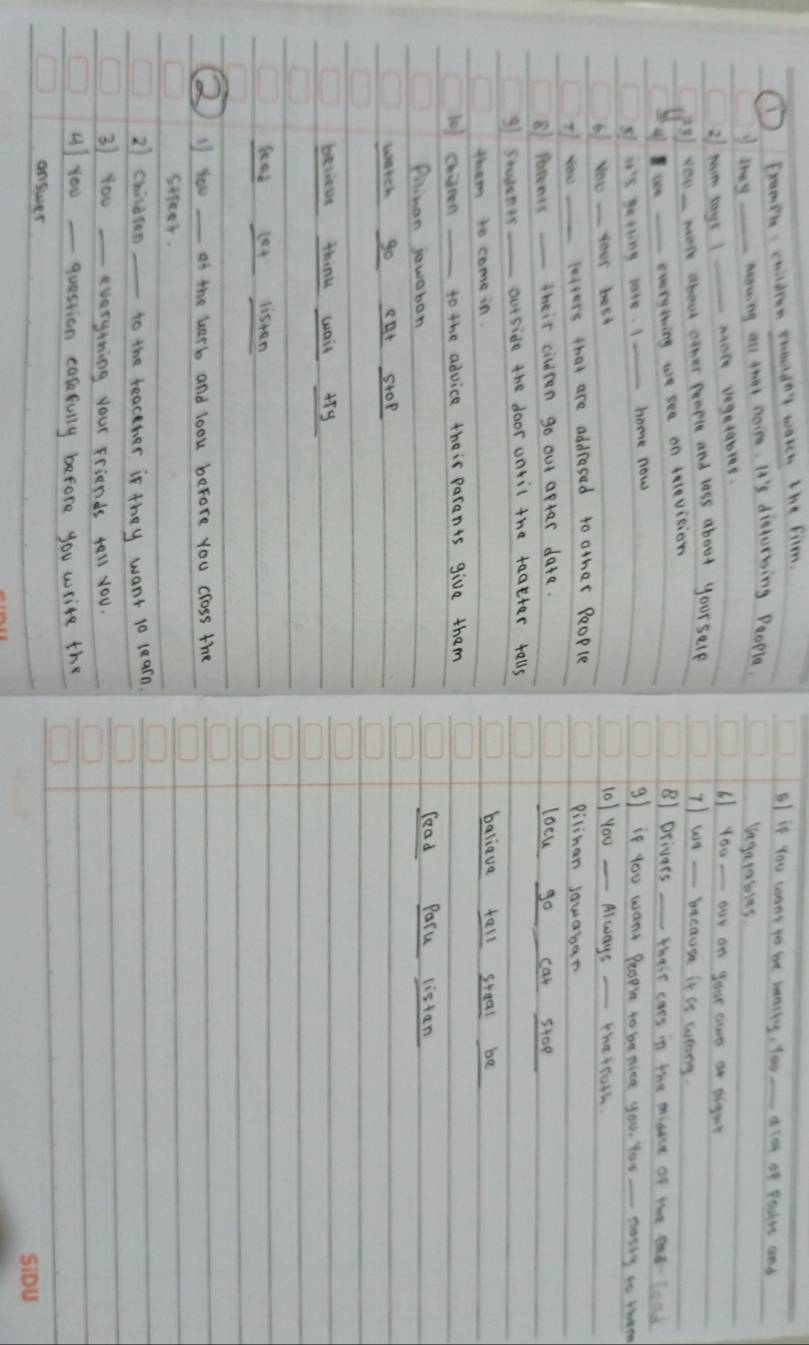 ① Example : children shouldn't watch the film.
1) They ___ making all that noire. It's disturbing People.
2) Mom says I ___ more vegetables.
3) You ___ more about other people and less about yourself
4) we ___ everything we see on television
5) it's getting late. I ___ home now
6) You ___ your best
7) You ___ letters that are addrased to other People
8) Parents ___ their cidren go out aftar date.
9) Students ___ outside the door until the taakter tells
them to come in.
10) Children ___ to the advice their Parants give them
Pilihan jawaban
watch go eat stop
believe think wait try
read let listen
② 1) You ___ at the werb and loou before you cross the
street.
2) Children ___ to the teackher if they want to learn.
3) You ___ everything your Friends tell you.
4) You ___ question carefully before you write the
answer
5) if you want to be healty, You ___ alot of Fruits and
Vagatables.
6) You ___ out on your own at night
7) wa ___ because it is wrong.
8) Drivers ___ their cars in the middle of the road
9) if You want People to be nice you. You ___ nasty to them
10) You ___ Always ___ the truth.
Pilihan Jawaban
locu go eat stop
baliave tall steal be
read Paru listan
SiDU